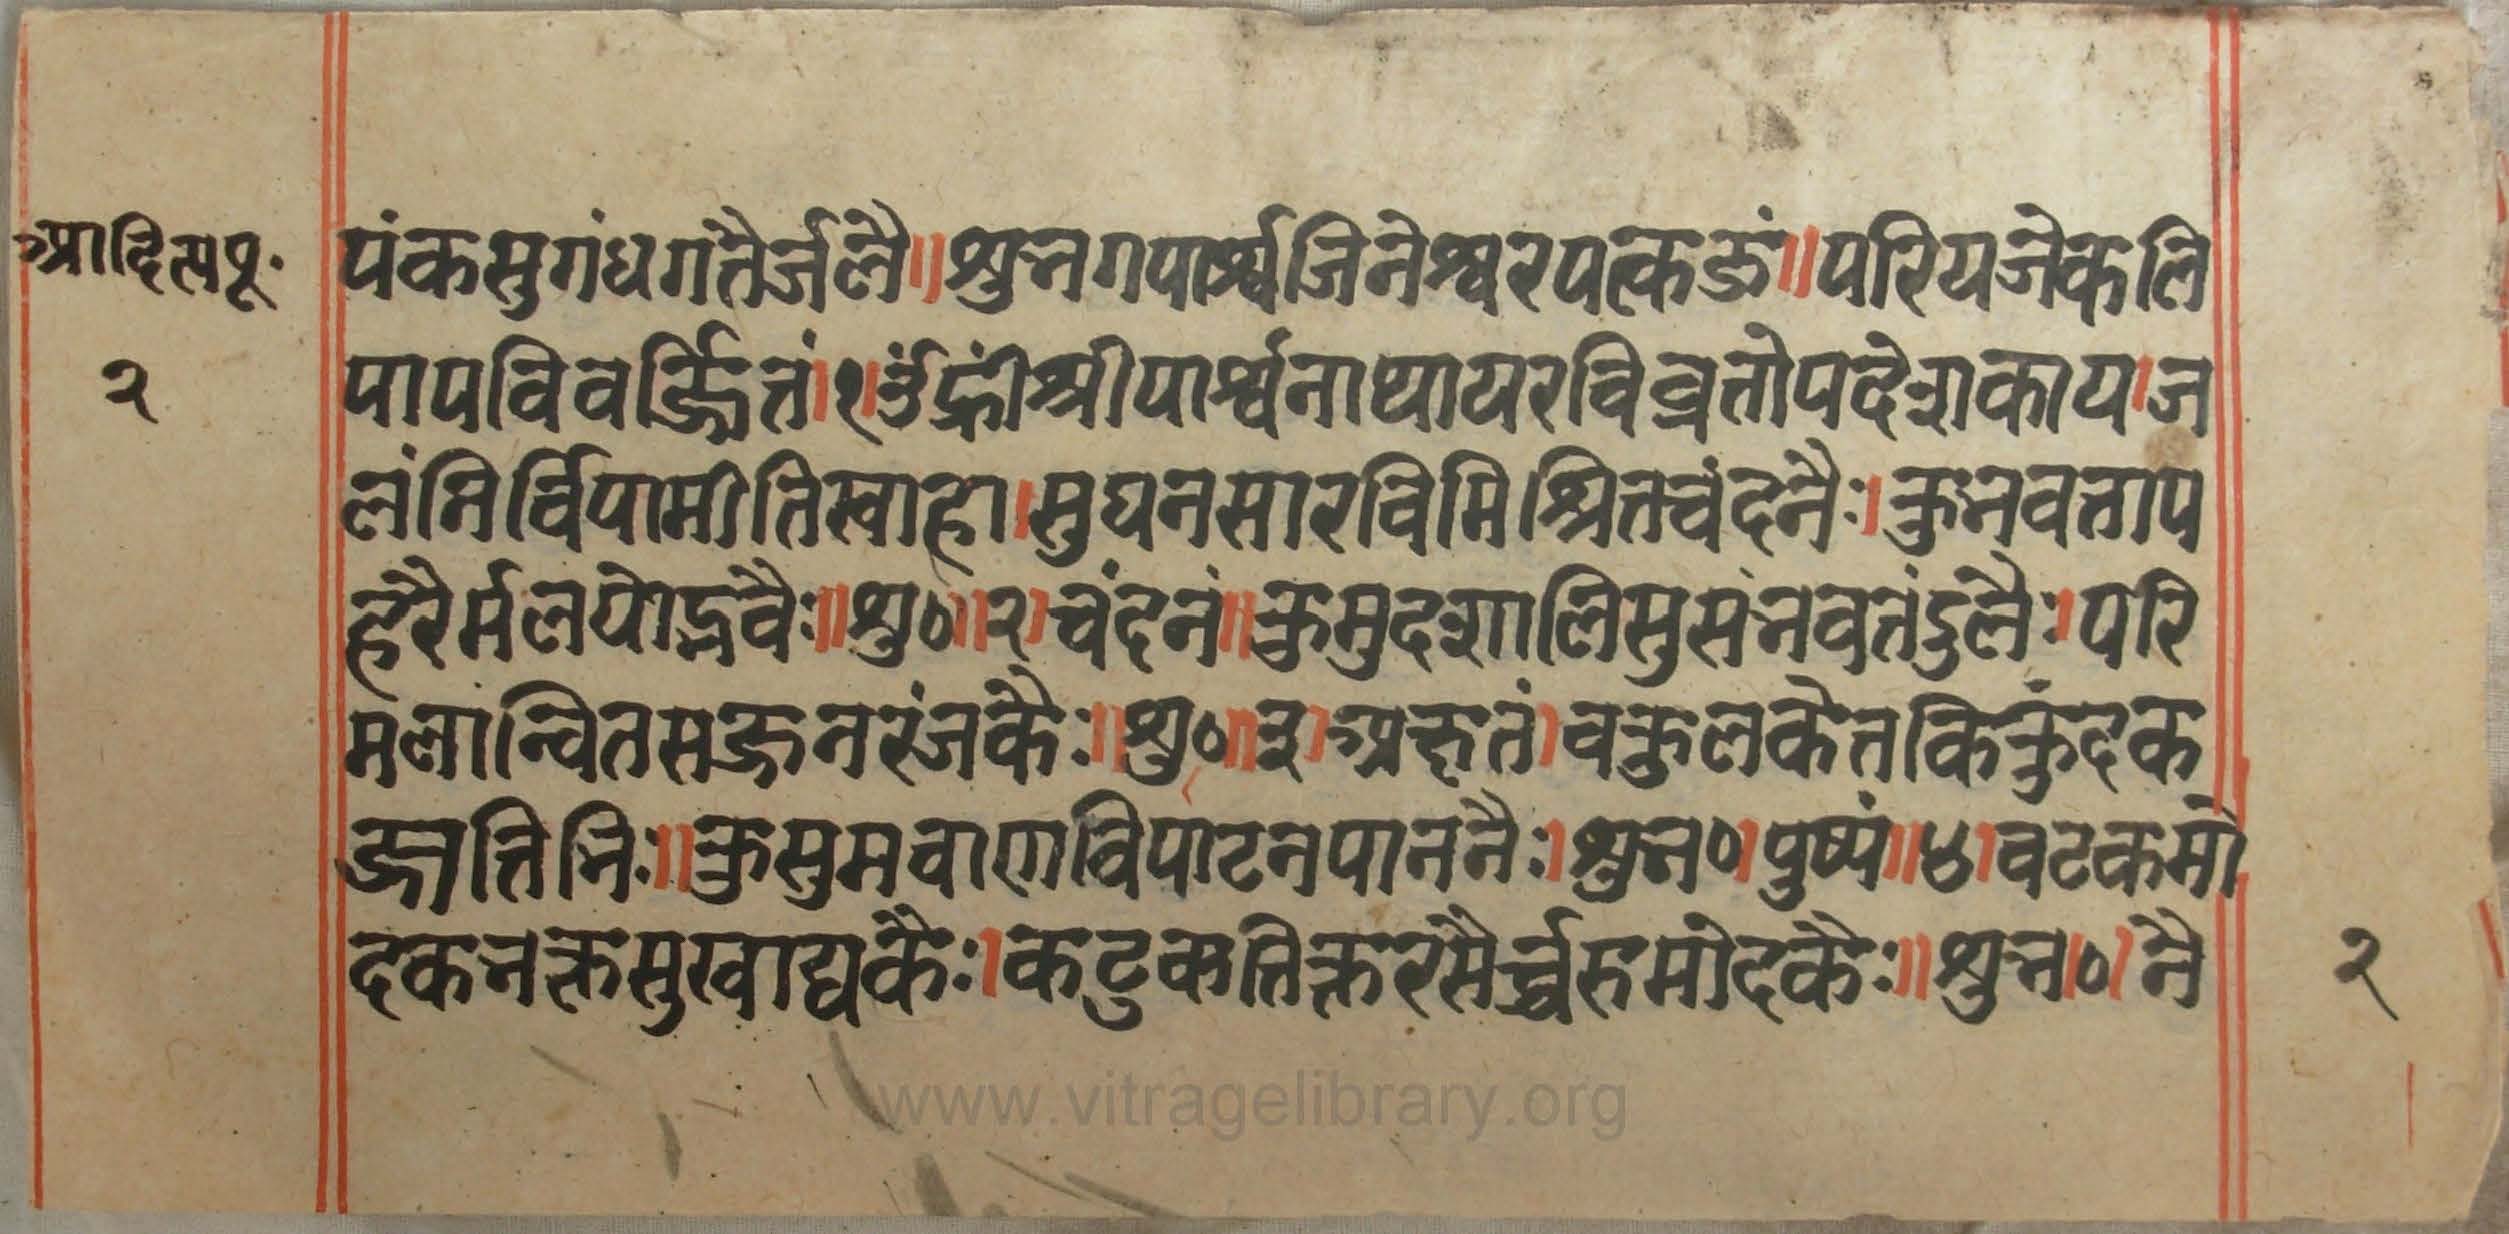 आदित्यपू॰
२
पंकसुगंधगतैर्जलै॥शुभगपार्श्वजिनेश्वरपत्कजं॥परियजेकलि
पापविवर्ज्जितं।१।ॐह्रींश्रीपार्श्वनाथायरविव्रतोपदेशकाय।ज
लंनिर्विपामीतिस्वाहा।सुघनसारविमिश्रितचंदनैः।कुभवताप
हरैर्मलयोद्भवैः॥शु०॥२।चंदनं॥कुमुदशालिसुसंभवतंडुलैः।परि
मलान्वितसज्जनरंजकैः॥शु०॥३।अक्षतं।वकुलकेतकिकुंदक
ज्जातिभिः॥कुसुमवाणविपाटनपाननैः।शुभ०।पुष्पं॥४।वटकमो
दकभक्तसुखाद्यकैः।कटुकतिक्तरसैर्च्चरुमोदकैः॥शुभ।०।नै
२
www.vitragelibrary.org